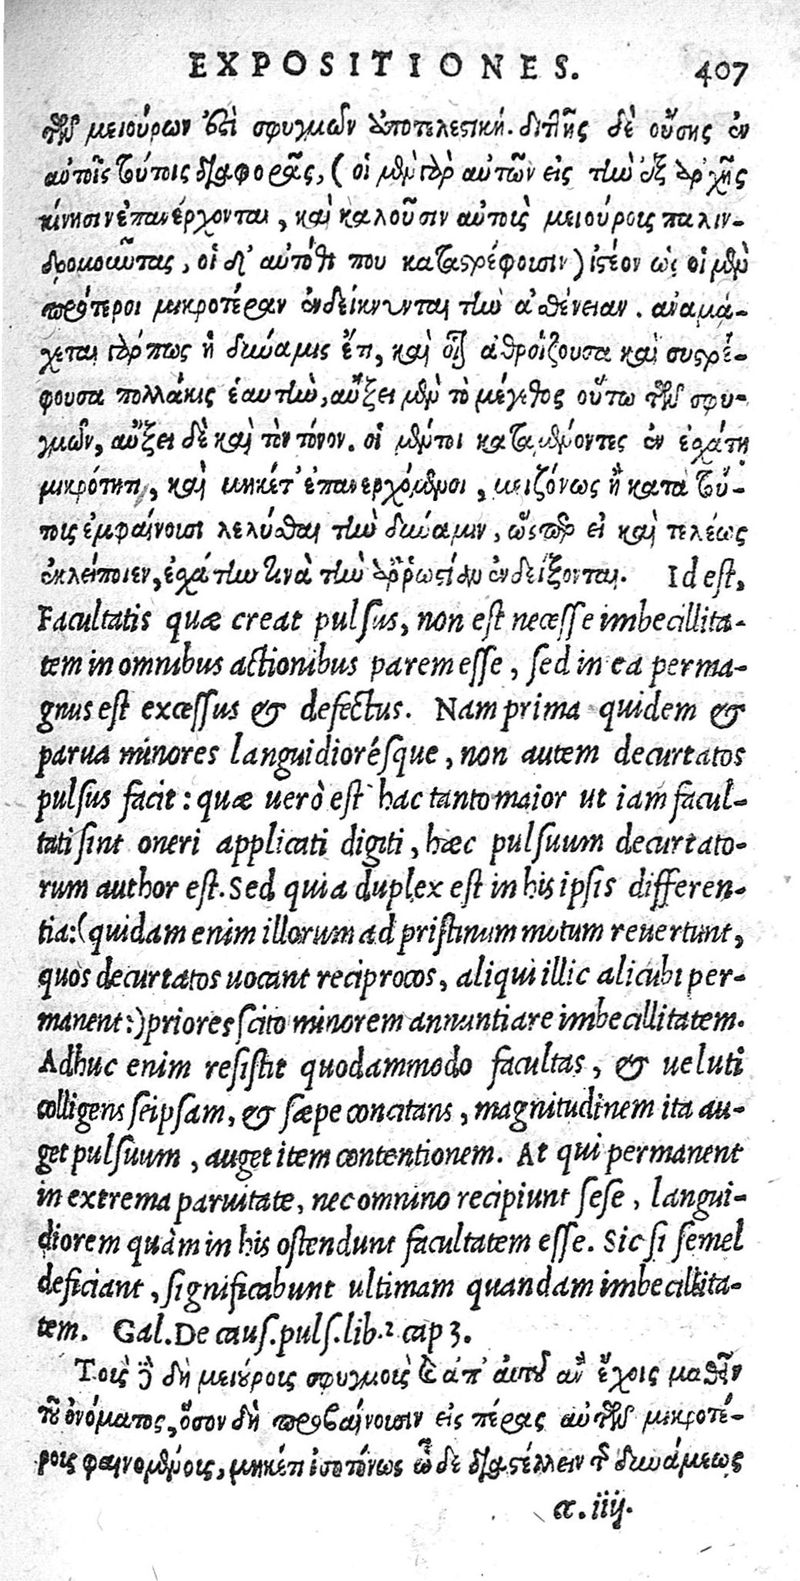 EXPOSITIONES. 407
τῶν μειούρων ἐστὶ σφυγμῶν ἀποτελεστική. διττῆς δὲ οὔσης ἐν
αὐτοῖς τούτοις διαφορᾶς, (οἱ μὲν γὰρ αὐτῶν εἰς τὴν ἐξ ἀρχῆς
κίνησιν ἐπανέρχονται, καὶ καλοῦσιν αὐτοὺς μειούρους παλιν-
δρομοῦντας, οἱ δ' αὐτόθι που καταστρέφουσιν) ἰστέον ὡς οἱ μὲν
πρότεροι μικροτέραν ἐνδείκνυνται τὴν ἀσθένειαν. ἀναμά-
χεται γάρ πως ἡ δύναμις ἔτι, καὶ οἷον ἀθροίζουσα καὶ συστρέ-
φουσα πολλάκις ἑαυτὴν, αὔξει μὲν τὸ μέγεθος οὕτω τῶν σφυ-
γμῶν, αὔξει δὲ καὶ τὸν τόνον. οἱ μέντοι καταμένοντες ἐν ἐσχάτῃ
μικρότητι, καὶ μηκέτ' ἐπανερχόμενοι, μειζόνως ἢ κατὰ τού-
τους ἐμφαίνουσι λελύσθαι τὴν δύναμιν, ὥσπερ εἰ καὶ τελέως
ἐκλείποιεν, ἐσχάτην τινὰ τὴν ἀῤῥωστίαν ἐνδείξονται. Id est,
Facultatis quæ creat pulsus, non est necesse imbecillita-
tem in omnibus actionibus parem esse, sed in ea perma-
gnus est excessus & defectus. Nam prima quidem &
parua minores languidiorésque, non autem decurtatos
pulsus facit: quæ uerò est hac tanto maior ut iam facul-
tati sint oneri applicati digiti, hæc pulsuum decurtato-
rum author est. Sed quia duplex est in his ipsis differen-
tia: (quidam enim illorum ad pristinum motum reuertunt,
quos decurtatos uocant reciprocos, aliqui illic alicubi per-
manent:) priores scito minorem annuntiare imbecillitatem.
Adhuc enim resistit quodammodo facultas, & ueluti
colligens seipsam, & sæpe concitans, magnitudinem ita au-
get pulsuum, auget item contentionem. At qui permanent
in extrema paruitate, nec omnino recipiunt sese, langui-
diorem quàm in his ostendunt facultatem esse. Sic si semel
deficiant, significabunt ultimam quandam imbecillita-
tem. Gal. De caus. puls. lib. 2 cap 3.
Τοῖς δὲ δὴ μειούροις σφυγμοῖς ἀπ' αὐτοῦ ἂν ἔχοις μαθεῖν
τοῦ ὀνόματος, ὅσον δὴ προβαίνουσιν εἰς πέρας αὐτῶν μικροτέ-
ροις φαινομένοις, μηκέτι ἰσοτόνως ὧδε διαστέλλειν τῆς δυνάμεως
α. iiij.